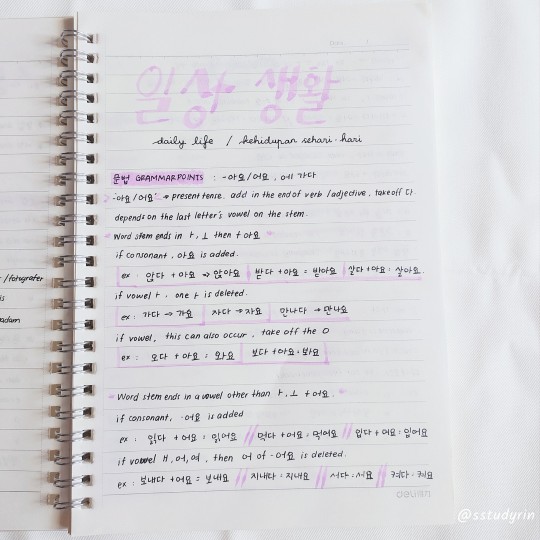 Date
일상 생활
daily life / kehidupan sehari-hari
문법 GRAMMAR POINTS : -아요/어요, 에 가다
-아요/어요 → present tense. add in the end of verb /adjective, take off 다.
depends on the last letter's vowel on the stem.
Word stem ends in ㅏ,ㅗ then + 아요
if consonant, 아요 is added.
ex : 앉다 + 아요 → 앉아요 받다 + 아요 = 받아요 살다 + 아요 : 살아요.
if vowel ㅏ. one ㅏ is deleted.
ex : 가다 → 가요 자다 → 자요 만나다 → 만나요
if vowel, this can also occur, take off the ㅇ
ex : 오다 + 아요 : 와요 보다 + 아요 = 봐요
Word stem ends in a vowel other than ㅏ,ㅗ + 어요.
if consonant, -어요 is added
ex : 읽다 + 어요 : 읽어요 // 먹다 + 어요 : 먹어요 // 입다 + 어요 : 입어요
if vowel ㅐ, 어, 여, then 어 of -어요 is deleted.
ex : 보내다 + 어요 = 보내요 // 지내다 : 지내요 // 서다 : 서요 // 켜다 : 켜요
deli
/fotografer
is
adam
@sstudyrin